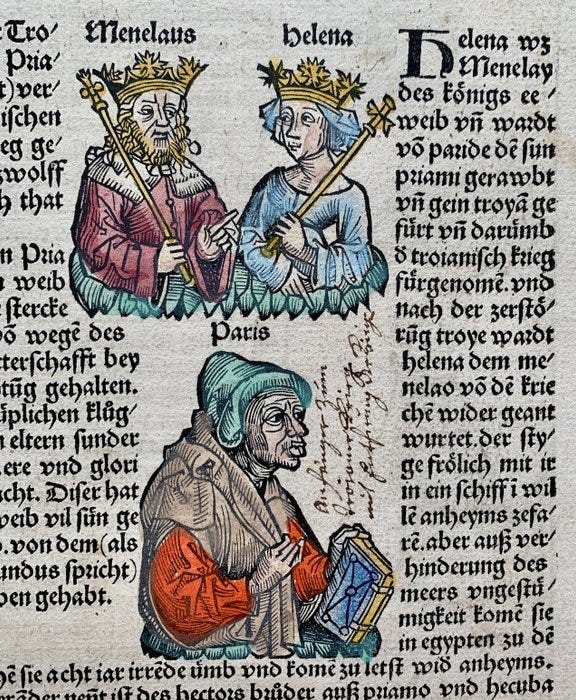 Tro-
Pria/
t)ver/
ischen
eg ge/
zwolff
h that
n Pria
n weib
stercke
vō wegē des
tterschafft bey
stūg gehalten.
üplichen klůg/
n eltern sunder
ere vnd glori
cht. Diser hat
weib vil sün ge
. von dem(als
undus spricht)
ben gehabt.
Menelaus
Helena
Paris
Helena wz
Menelay
des königs ee/
weib vñ wardt
vō paride dē sun
priami gerawbt
vñ gein troya ge
fürt vñ darūmb
d̕ troianisch krieg
fürgenomē. vnd
nach der zerstö/
rūg troye wardt
helena dem me/
nelao vō dē krie
chē wider geant
wurtet. der sty/
ge frölich mit ir
in ein schiff ī wil
lē anheyms zefa/
rē. aber auß ver/
hinderung des
meers vngestü/
migkeit komē sie
in egypten zu dē
hē sie acht iar irrēde ūmb vnd komē zu letst wid̕ anheyms.
nēt ist des hectors brüder auß priamo vnd hecuba